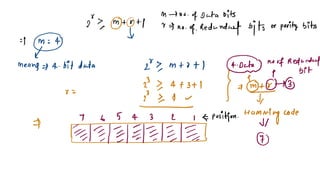 2^r ≥ m + r + 1
m → no. of Data bits
r → no. of Redundant bits or parity bits
:1 m = 4
means ⇒ 4 bit data
r =
2^r ≥ m + r + 1
2^3 ≥ 4 + 3 + 1
2^3 ≥ 8 ✓
4-Data
no. of Redundant bit
⇒ m + r → 3
Hamming code
7
⇒ 7 6 5 4 3 2 1 ← Position